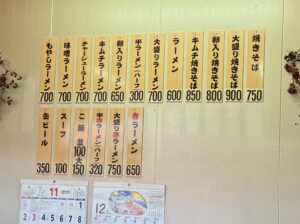 焼きそば 750
大盛り焼きそば 900
卵入り焼きそば 800
キムチ焼きそば 850
ラーメン 600
大盛りラーメン 700
半ラーメン(ハーフ) 300
卵入りラーメン 650
キムチラーメン 700
チャーシューラーメン 700
味噌ラーメン 700
もやしラーメン 700
赤ラーメン 650
大盛り赤ラーメン 750
半赤ラーメン(ハーフ) 320
ご飯 並100 大150
スープ 100
缶ビール 350
11
12